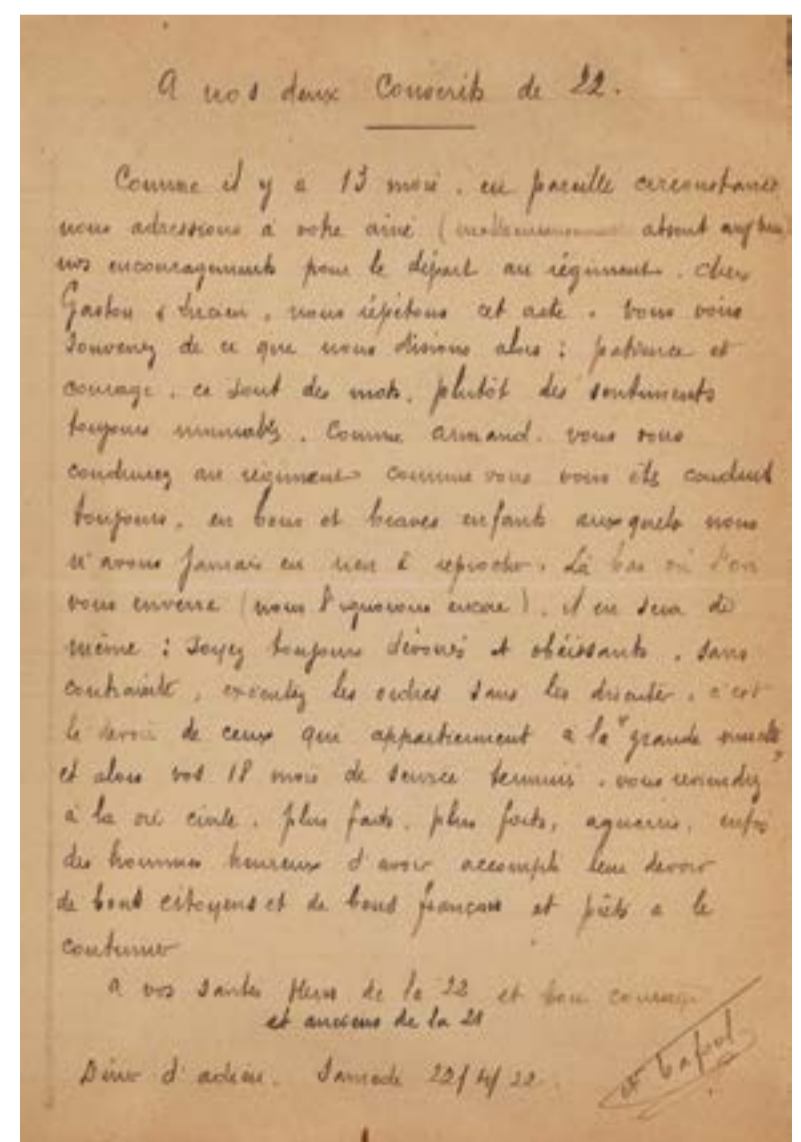 A nos deux Conscrits de 22.
Comme il y a 13 mois, en pareille circonstance
nous adressions à votre ainé ( absent
nos encouragements pour le départ au régiment. Chers
Gaston & Lucien, nous répétons cet acte. Vous vous
souvenez de ce que nous disions alors : patience et
courage, ce sont des mots, plutôt des sentiments
toujours immuables. Comme Armand, vous vous
conduirez au régiment comme vous vous êtes conduit
toujours, en bons et braves enfants auxquels nous
n'avons jamais eu rien à reprocher. Là bas où l'on
vous enverra (nous l'ignorons encore), il en sera de
même : Soyez toujours dévoués et obéissants, sans
contrainte, exécutez les ordres sans les discuter, c'est
le devoir de ceux qui appartiennent à la "grande muette"
et alors vos 18 mois de service terminés, vous reviendrez
à la vie civile, plus faits, plus forts, aguerris, enfin
des hommes heureux d'avoir accompli leur devoir
de bons citoyens et de bons français et prêts à le
continuer
A vos santés de la 22 et bon courage
et anciens de la 21
Diner d'adieu. Samedi 22/4/22.